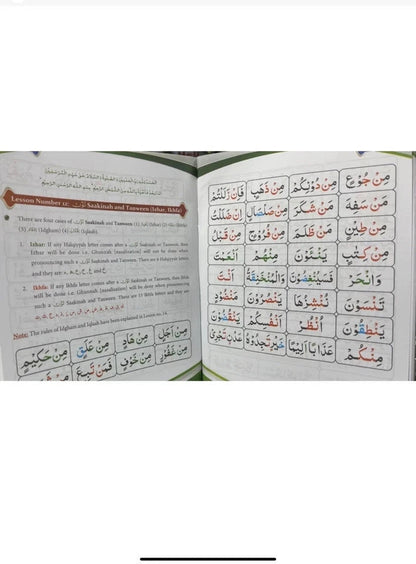 Lesson Number 12: نُون Saakinah and Tanween (Izhar, Ikhfa)
There are four cases of نُون Saakinah and Tanween (1) إظهار (Izhar) (2) إخفاء (Ikhfa)
(3) إدغام (Idgham) (4) إقلاب (Iqlaab).
1. Izhar: If any Huluqiyyah letter comes after a نُون Saakinah or Tanween, then
Izhar will be done i.e. Ghunnah (nasalization) will not be done when
pronouncing such a نُون Saakinah and Tanween. There are 6 Huluqiyyah letters
and they are:
2. Ikhfa: If any Ikhfa letter comes after a نُون Saakinah or Tanween, then Ikhfa
will be done i.e. Ghunnah (nasalization) will be done when pronouncing
such a نُون Saakinah and Tanween. There are 15 Ikhfa letters and they are
Note: The rules of Idgham and Iqlaab have been explained in Lesson no. 14.
مِنْ اَجَلٍ مِنْ هَادٍ مِنْ عَلَقٍ مِنْ حَكِيْمٍ
مِنْ غَفُوْرٍ مِنْ خَوْفٍ فَمَنْ تَبِعَ
مِنْ جُوْعٍ مِنْ دُوْنِكُمْ مِنْ ذَهَبٍ فَاِنْ زَلَلْتُمْ
مَنْ سَفِهَ مَنْ شَكَرَ مِنْ صَلْصَالٍ اِنْ ضَلَلْتُ
مِنْ طِيْنٍ مَنْ ظَلَمَ مِنْ فُرُوْجٍ مِنْ قَبْلُ
مِنْ كِتٰبٍ يَنْـَٔوْنَ مِنْهُمْ اَنْعَمْتَ
وَانْحَرْ فَسَيُنْغِضُوْنَ وَالْمُنْخَنِقَةُ اَنْتَ
تَنْسَوْنَ نُنْشِزُهَا يَنْصُرُوْنَ مَنْضُوْدٍ
يَنْطِقُوْنَ اُنْظُرْ اَنْفُسَكُمْ يَنْقُضُوْنَ
مِنْكُمْ عَذَابًا اَلِيْمًا خَيْرٍ تَجِدُوْهُ عَدْنٍ تَجْرِىْ